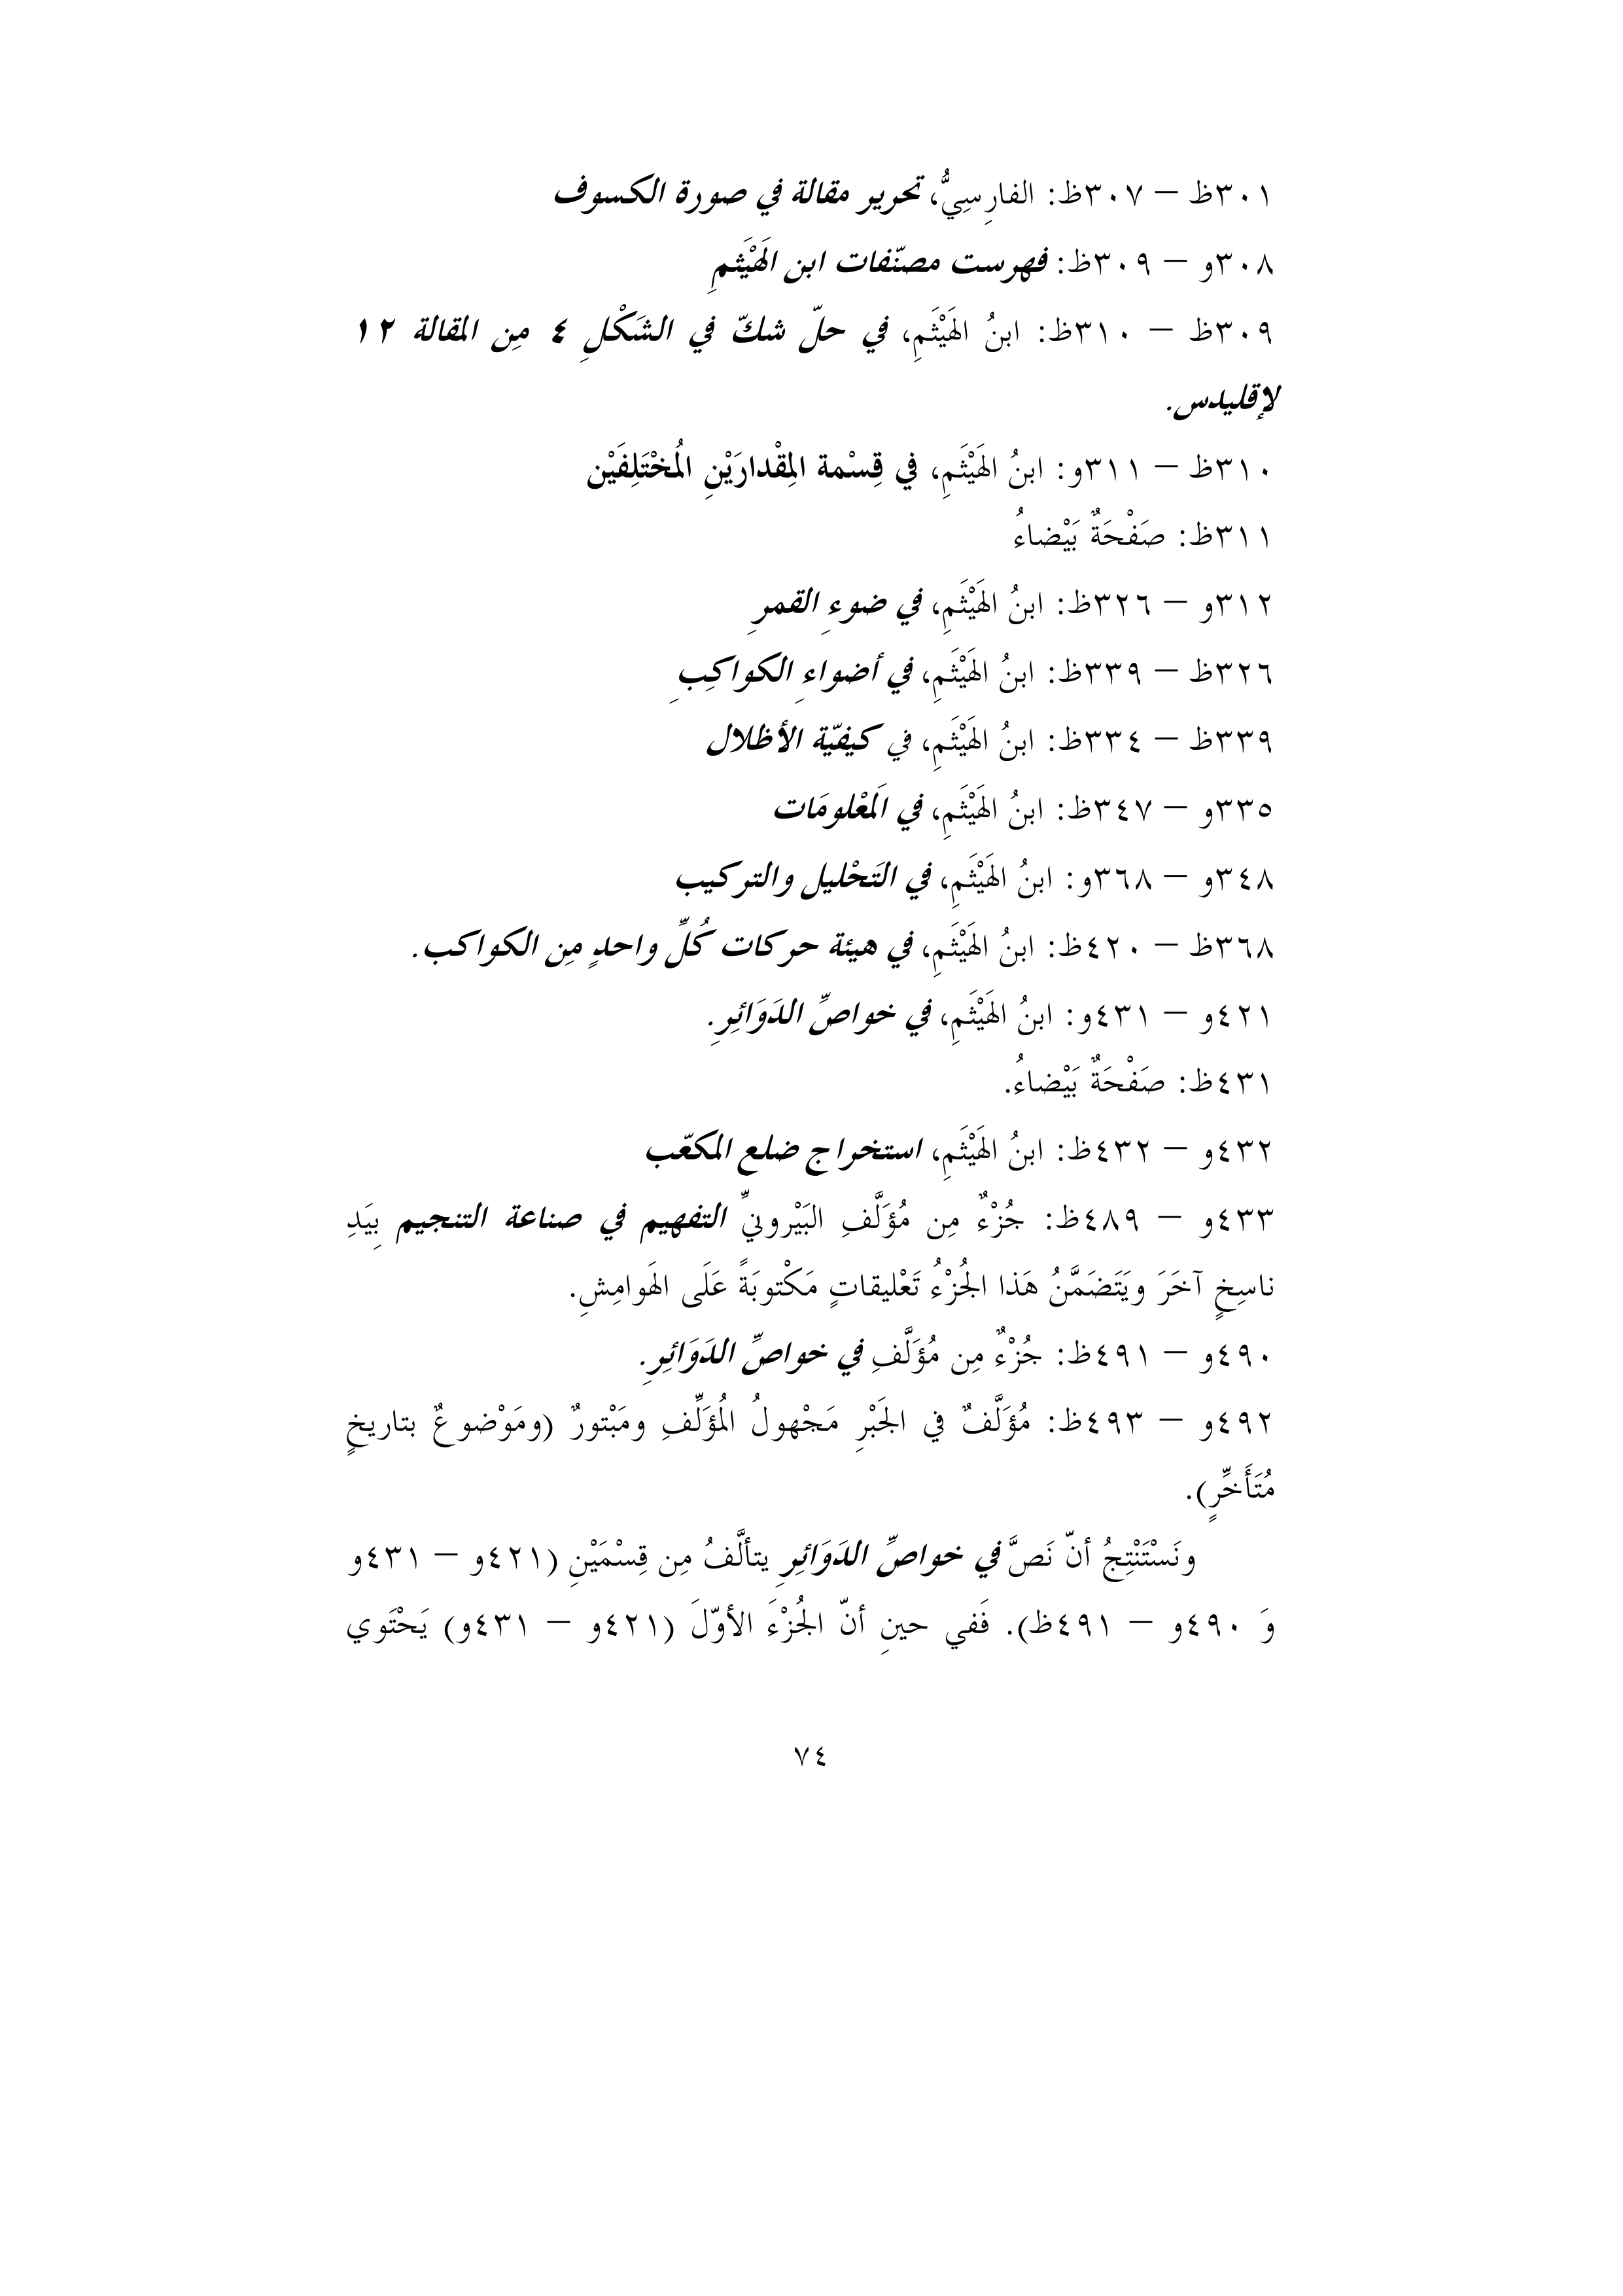 ٣٠١ظ – ٣٠٧ظ: الفارِسِيُّ، تحرير مقالة في صورة الكسوف
٣٠٨و – ٣٠٩ظ: فهرست مصنّفات ابن الهَيْثمِ
٣٠٩ظ – ٣١٠ظ: ابنُ الهَيْثَمِ، في حلّ شكّ في الشَكْلِ ٤ مِن المقالة ١٢
لإقليدس.
٣١٠ظ – ٣١١و: ابنُ الهَيْثَمِ، في قِسْمة المِقْدارَيْنِ المُخْتَلِفَيْن
٣١١ظ: صَفْحَةٌ بَيْضاءُ
٣١٢و – ٣٢٦ظ: ابنُ الهَيْثَمِ، في ضوءِ القمرِ
٣٢٦ظ – ٣٣٩ظ: ابنُ الهَيْثَمِ، في أضواءِ الكواكِبِ
٣٣٩ظ – ٣٣٤ظ: ابنُ الهَيْثَمِ، في كيفيّة الأظلال
٣٣٥و – ٣٤٧ظ: ابنُ الهَيْثَمِ، في المَعْلومَات
٣٤٨و – ٣٦٨و: ابنُ الهَيْثَمِ، في التَحْليل والتركيب
٣٦٨ظ – ٤٢٠ظ: ابنُ الهَيْثَمِ، في هيئة حركات كُلِّ واحدٍ مِن الكواكب.
٤٢١و – ٤٣١و: ابنُ الهَيْثَمِ، في خواصِّ الدَوَائِرِ.
٤٣١ظ: صَفْحَةٌ بَيْضاءُ.
٤٣٢و – ٤٣٢ظ: ابنُ الهَيْثَمِ، استخراج ضلع المكعّب
٤٣٣و – ٤٨٩ظ: جُزْءٌ مِن مُؤَلَّفِ البَيْرونيِّ التفهيم في صناعة التنجيم بِيَدِ
ناسِخٍ آخَرَ ويَتَضَمَّنُ هَذا الجُزْءُ تَعْليقاتٍ مَكْتوبَةً عَلَى الهَوامِشِ.
٤٩٠و – ٤٩١ظ: جُزْءٌ مِن مُؤَلَّفِ في خواصِّ الدَوَائِرِ.
٤٩٢و – ٤٩٣ظ: مُؤَلَّفٌ في الجَبْرِ مَجْهولُ المُؤَلِّفِ ومَبْتورٌ (ومَوْضوعٌ بتاريخٍ
مُتَأَخِّرٍ).
ونَسْتَنْتِجُ أنّ نَصَّ في خواصِّ الدَوَائِرِ يتألَّفُ مِن قِسْمَيْنِ (٤٢١و – ٤٣١و
وَ ٤٩٠و – ٤٩١ظ). فَفي حينِ أنّ الجُزْءَ الأوّلَ (٤٢١و – ٤٣١و) يَحْتَوي
٧٤